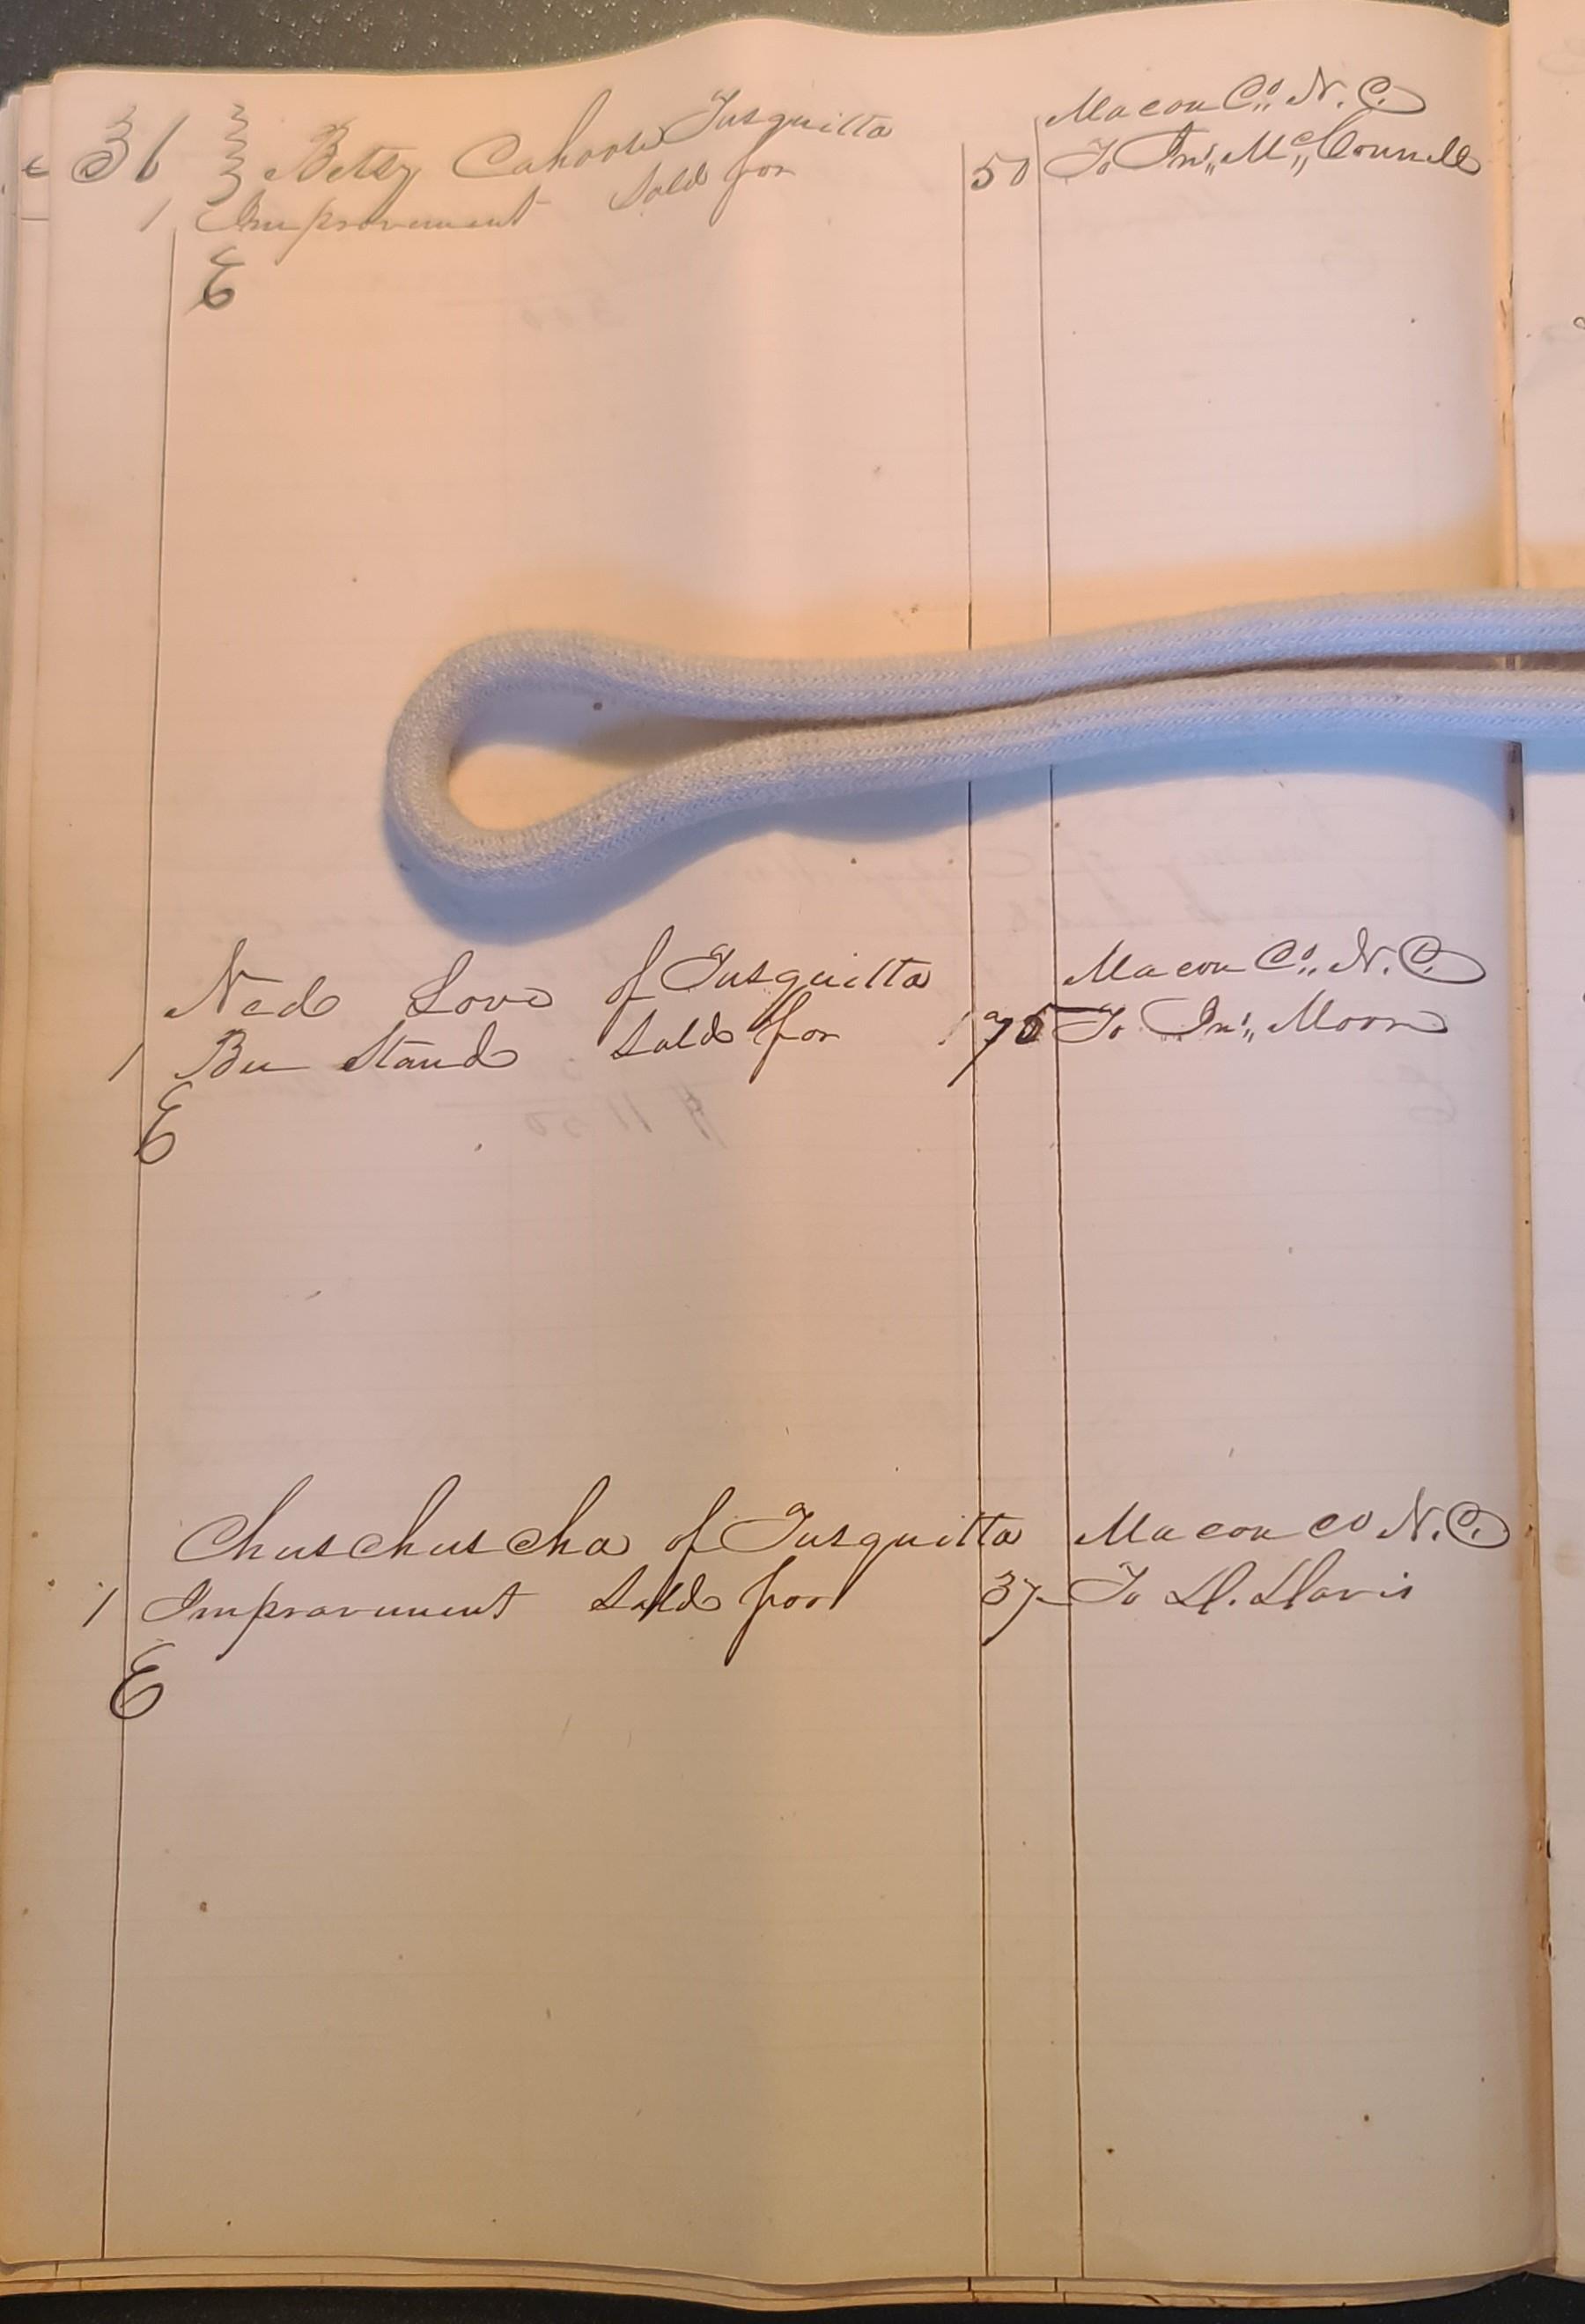 36 Betsy Cahoose Tusquitta Macon Co. N. C.
1 Improvement Sold for 50 To Jno. McConnell
E
Ned Love of Tusquitta Macon Co. N. C.
1 Bee Stand Sold for 1 75 To Jno. Moore
E
Chuschuscha of Tusquitta Macon Co N. C.
1 Improvement Sold for 37 To D. Davis
E